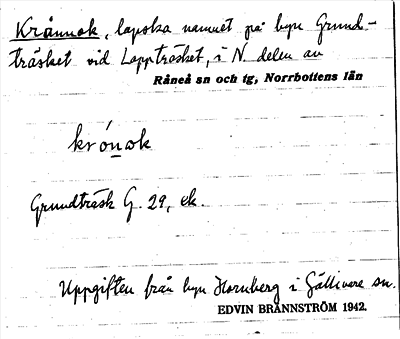 Krånnok, lapska namnet på byn Grund-
träsket vid Lappträsket, i N. delen av
Råneå sn och tg, Norrbottens län
krónok
Grundträsk G. 29, ek.
Uppgiften från byn Hornberg i Gällivare sn.
EDVIN BRÄNNSTRÖM 1942.